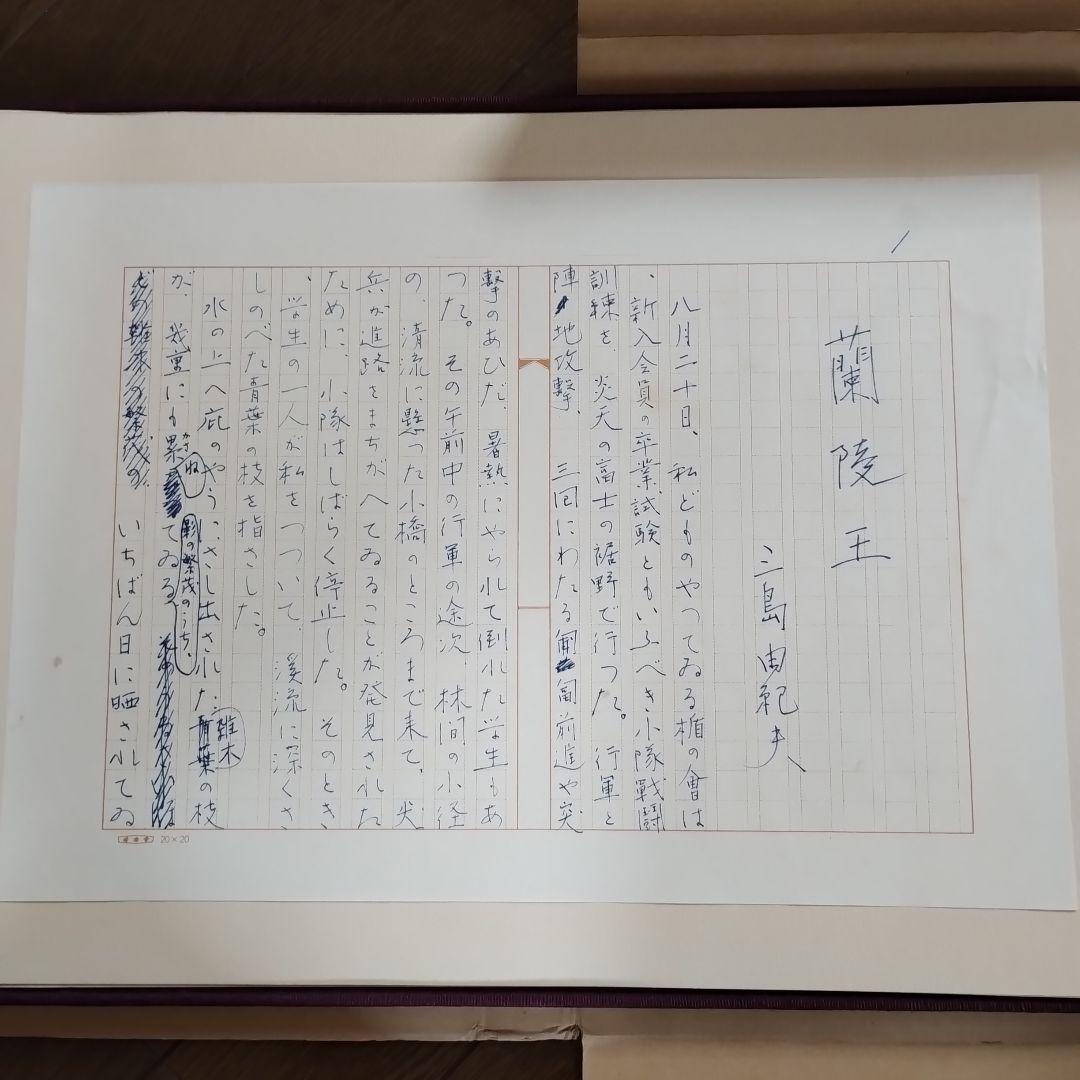 1
蘭陵王
三島由紀夫
八月二十日、私どものやつてゐる楯の會は
、新入会員の卒業試験ともいふべき小隊戰闘
訓練を、炎天の富士の裾野で行つた。行軍と
陣地攻撃、三回にわたる匍匐前進や突
撃のあひだ、暑熱にやられて倒れた学生もあ
つた。その午前中の行軍の途次、林間の小径
の、清流に懸つた小橋のところまで来て、尖
兵が進路をまちがへてゐることが発見された
ために、小隊はしばらく停止した。そのとき
、学生の一人が私をつついて、渓流に深くさ
しのべた青葉の枝を指さした。
水の上へ庇のやうにさし出された雑木の枝
が、幾重にも累かさねてゐる影の繁茂のうち、
いちばん日に晒されてゐ
20×20